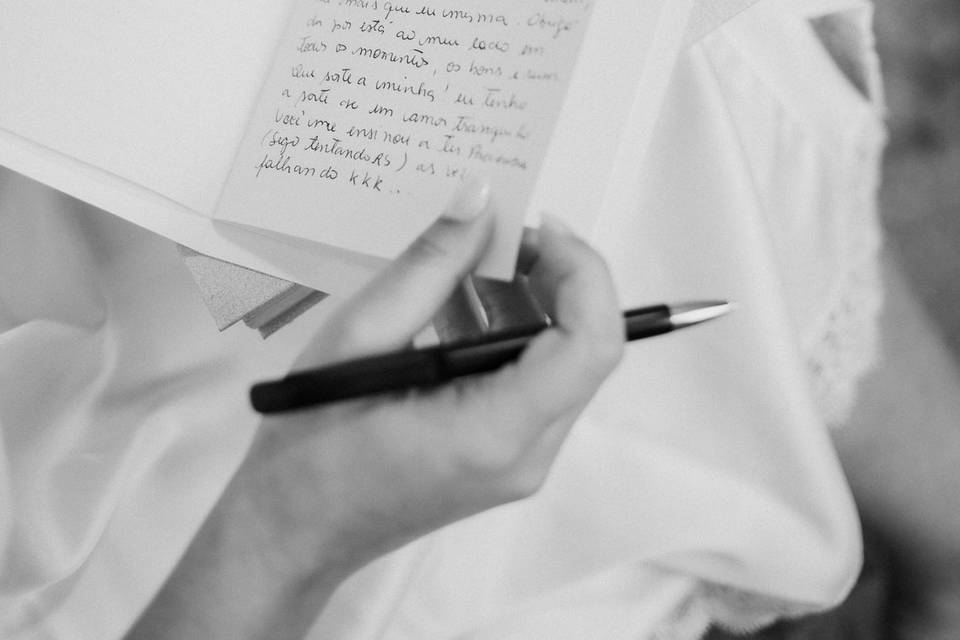 mais que eu mesma. Obriga
da por está ao meu lado em
todos os momentos, os bons e ruins
Que sorte a minha! eu tenho
a sorte de um amor tranquilo
Você me ensinou a ter Paciência
(Sigo tentando RS) as
falhando kkk..